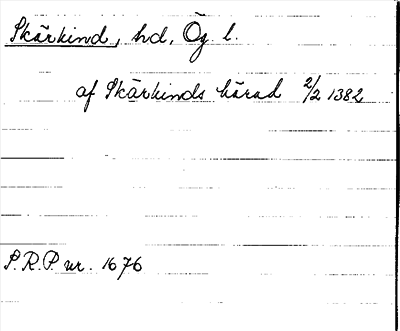 Skärkind, hd, Ög l.
af Skärkinds härad 2/2 1382
S.R.P. nr. 1676